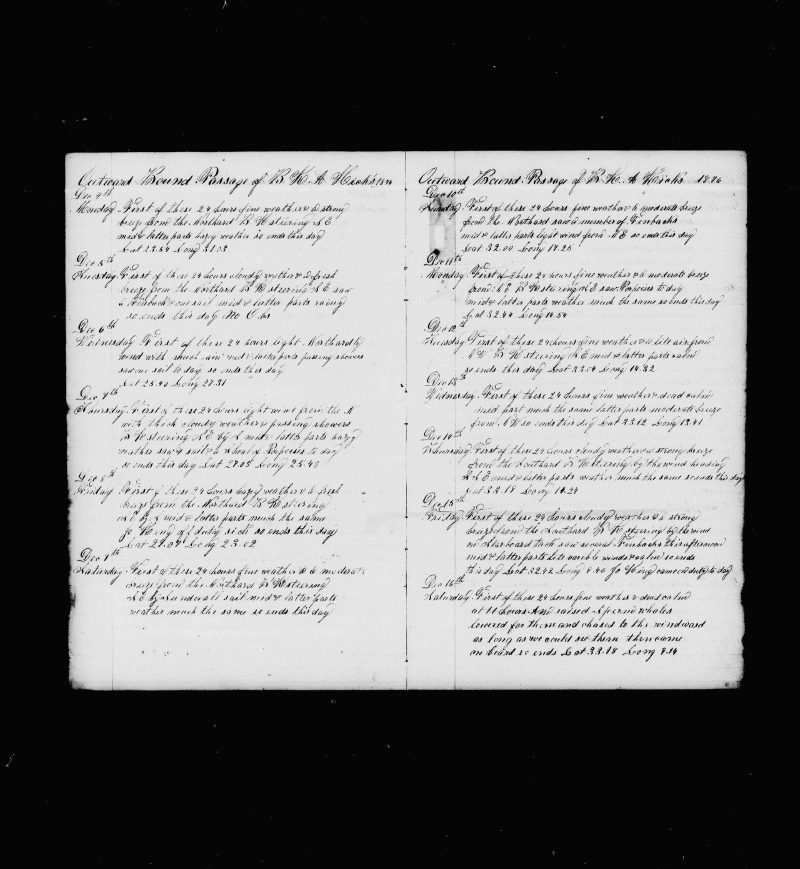 Outward Bound Passage of B K A Hicks 1876
Dec 4th
Monday First of these 24 hours fine weather & strong
breze from the Northard B K steering S E
mid & latter parts hazy weather so ends this day
Lat 23.54 Long 31.58
Dec 5th
Tuesday First of these 24 hours cloudy weather & fresh
breze from the Northard B K steering S E saw
a Finback & one sail mid & latter parts rainy
so ends this day No Obs
Dec 6th
Wednesday First of these 24 hours light Northardly
wind with much rain mid & latter parts passing showers
saw one sail to day so ends this day
Lat 25.40 Long 27.31
Dec 7th
Thursday First of these 24 hours light wind from the N
with thick cloudy weather & passing showers
B K steering S E by S mid & latter parts hazy
weather saw a sail & a shoal of Porposes to day
so ends this day Lat 27.05 Long 25.48
Dec 8th
Friday First of these 24 hours hazy weather & fresh
breze from the Northard B K steering
S E by S mid & latter parts much the same
Jo King off duty sick so ends this day
Lat 29.07 Long 23.02
Dec 9th
Saturday First of these 24 hours fine weather & moderate
breze from the Northard B K steering
S E by S under all sail mid & latter parts
weather much the same so ends this day
Outward Bound Passage of B K A Hicks 1876
Dec 10th
Sunday First of these 24 hours fine weather & moderate breze
from the Northard saw a number of Finbacks
mid & latter parts light wind from N E so ends this day
Lat 32.00 Long 17.25
Dec 11th
Monday First of these 24 hours fine weather & moderate breze
from N E B K steering S E saw Porposes to day
mid & latter parts weather much the same so ends this day
Lat 32.44 Long 14.54
Dec 12th
Tuesday First of these 24 hours fine weather & a lite air from
N W B K steering S E mid & latter parts calm
so ends this day Lat 33.04 Long 14.32
Dec 13th
Wednesday First of these 24 hours fine weather & dead calm
mid part much the same latter parts moderate breze
from N W so ends this day Lat 33.12 Long 13.41
Dec 14th
Thursday First of these 24 hours cloudy weather & strong breze
from the Southard B K steering by the wind heading
mid & latter parts weather much the same so ends this day
Lat 33.18 Long 10.24
Dec 15th
Friday First of these 24 hours cloudy weather & a strong
breze from the Southard B K steering by the wind
on Starboard tack saw several Finbacks this afternoon
mid & latter parts lite varible winds & calm so ends
this day Lat 32.42 Long 8.40 Jo King comes on duty to day
Dec 16th
Saturday First of these 24 hours fine weather & dead calm
at 11 hours A.M. raised Sperm whales
lowered for them and chased to the windward
as long as we could see them then came
on board so ends Lat 33.18 Long 8.14